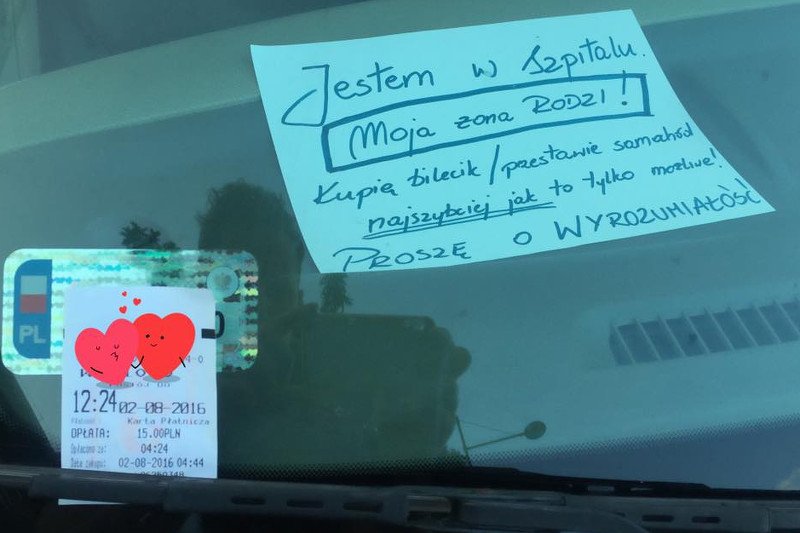 Jestem w Szpitalu.
Moja żona RODZI!
Kupię bilecik/przestawie samahód
najszybciej jak to tylko możliwe!
PROSZĘ o WYROZUMIAŁOŚĆ
PL
12:24 02-08-2016
Karta Płatnicza
OPŁATA: 15.00PLN
04:24
02-08-2016 04:44